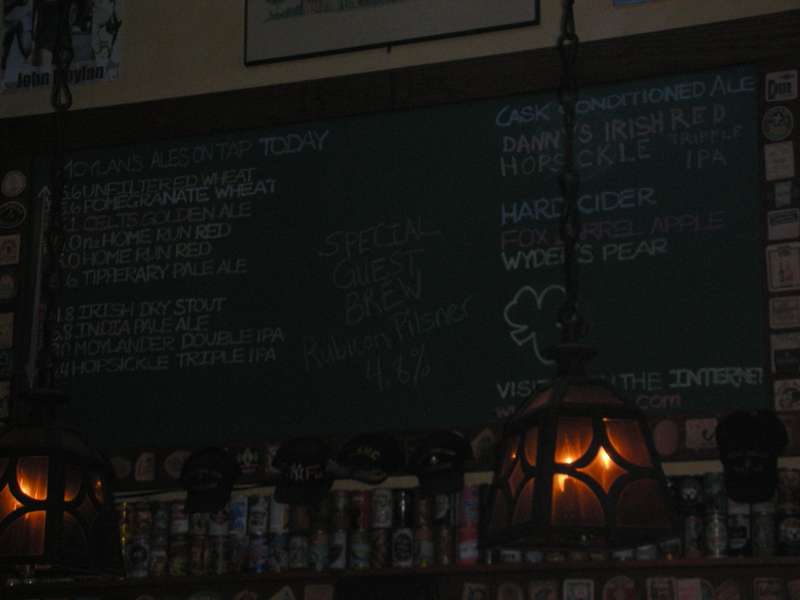 John Moylan
MOYLAN'S ALES ON TAP TODAY
UNFILTERED WHEAT
POMEGRANATE WHEAT
CELTS GOLDEN ALE
HOME RUN RED
HOME RUN RED
TIPPERARY PALE ALE
IRISH DRY STOUT
INDIA PALE ALE
MOYLANDER DOUBLE IPA
HOPSICKLE TRIPLE IPA
SPECIAL
GUEST
BREW
Rubicon Pilsner
4.8%
CASK CONDITIONED ALE
DANNY'S IRISH RED
HOPSICKLE TRIPPLE
IPA
HARD CIDER
FOX BARREL APPLE
WYDER'S PEAR
VISIT THE INTERNET
.com